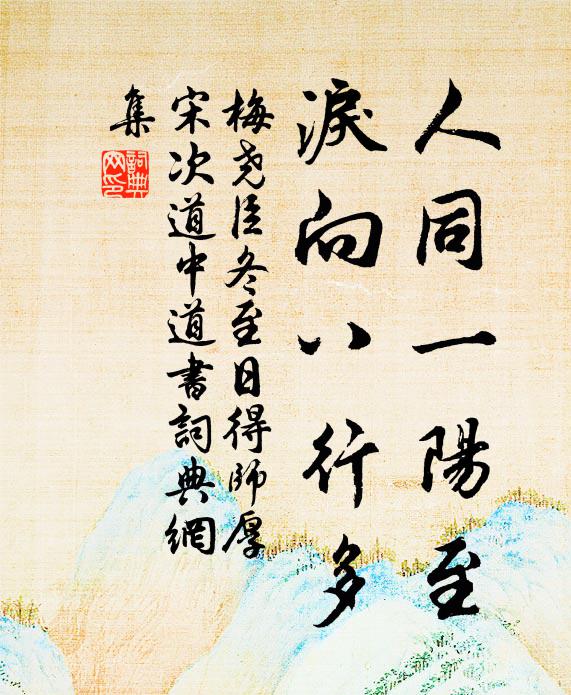 人同一陽至
淚向八行多
梅堯臣冬至日得師厚
宋次道中道書詞典網
集
詞典
網印